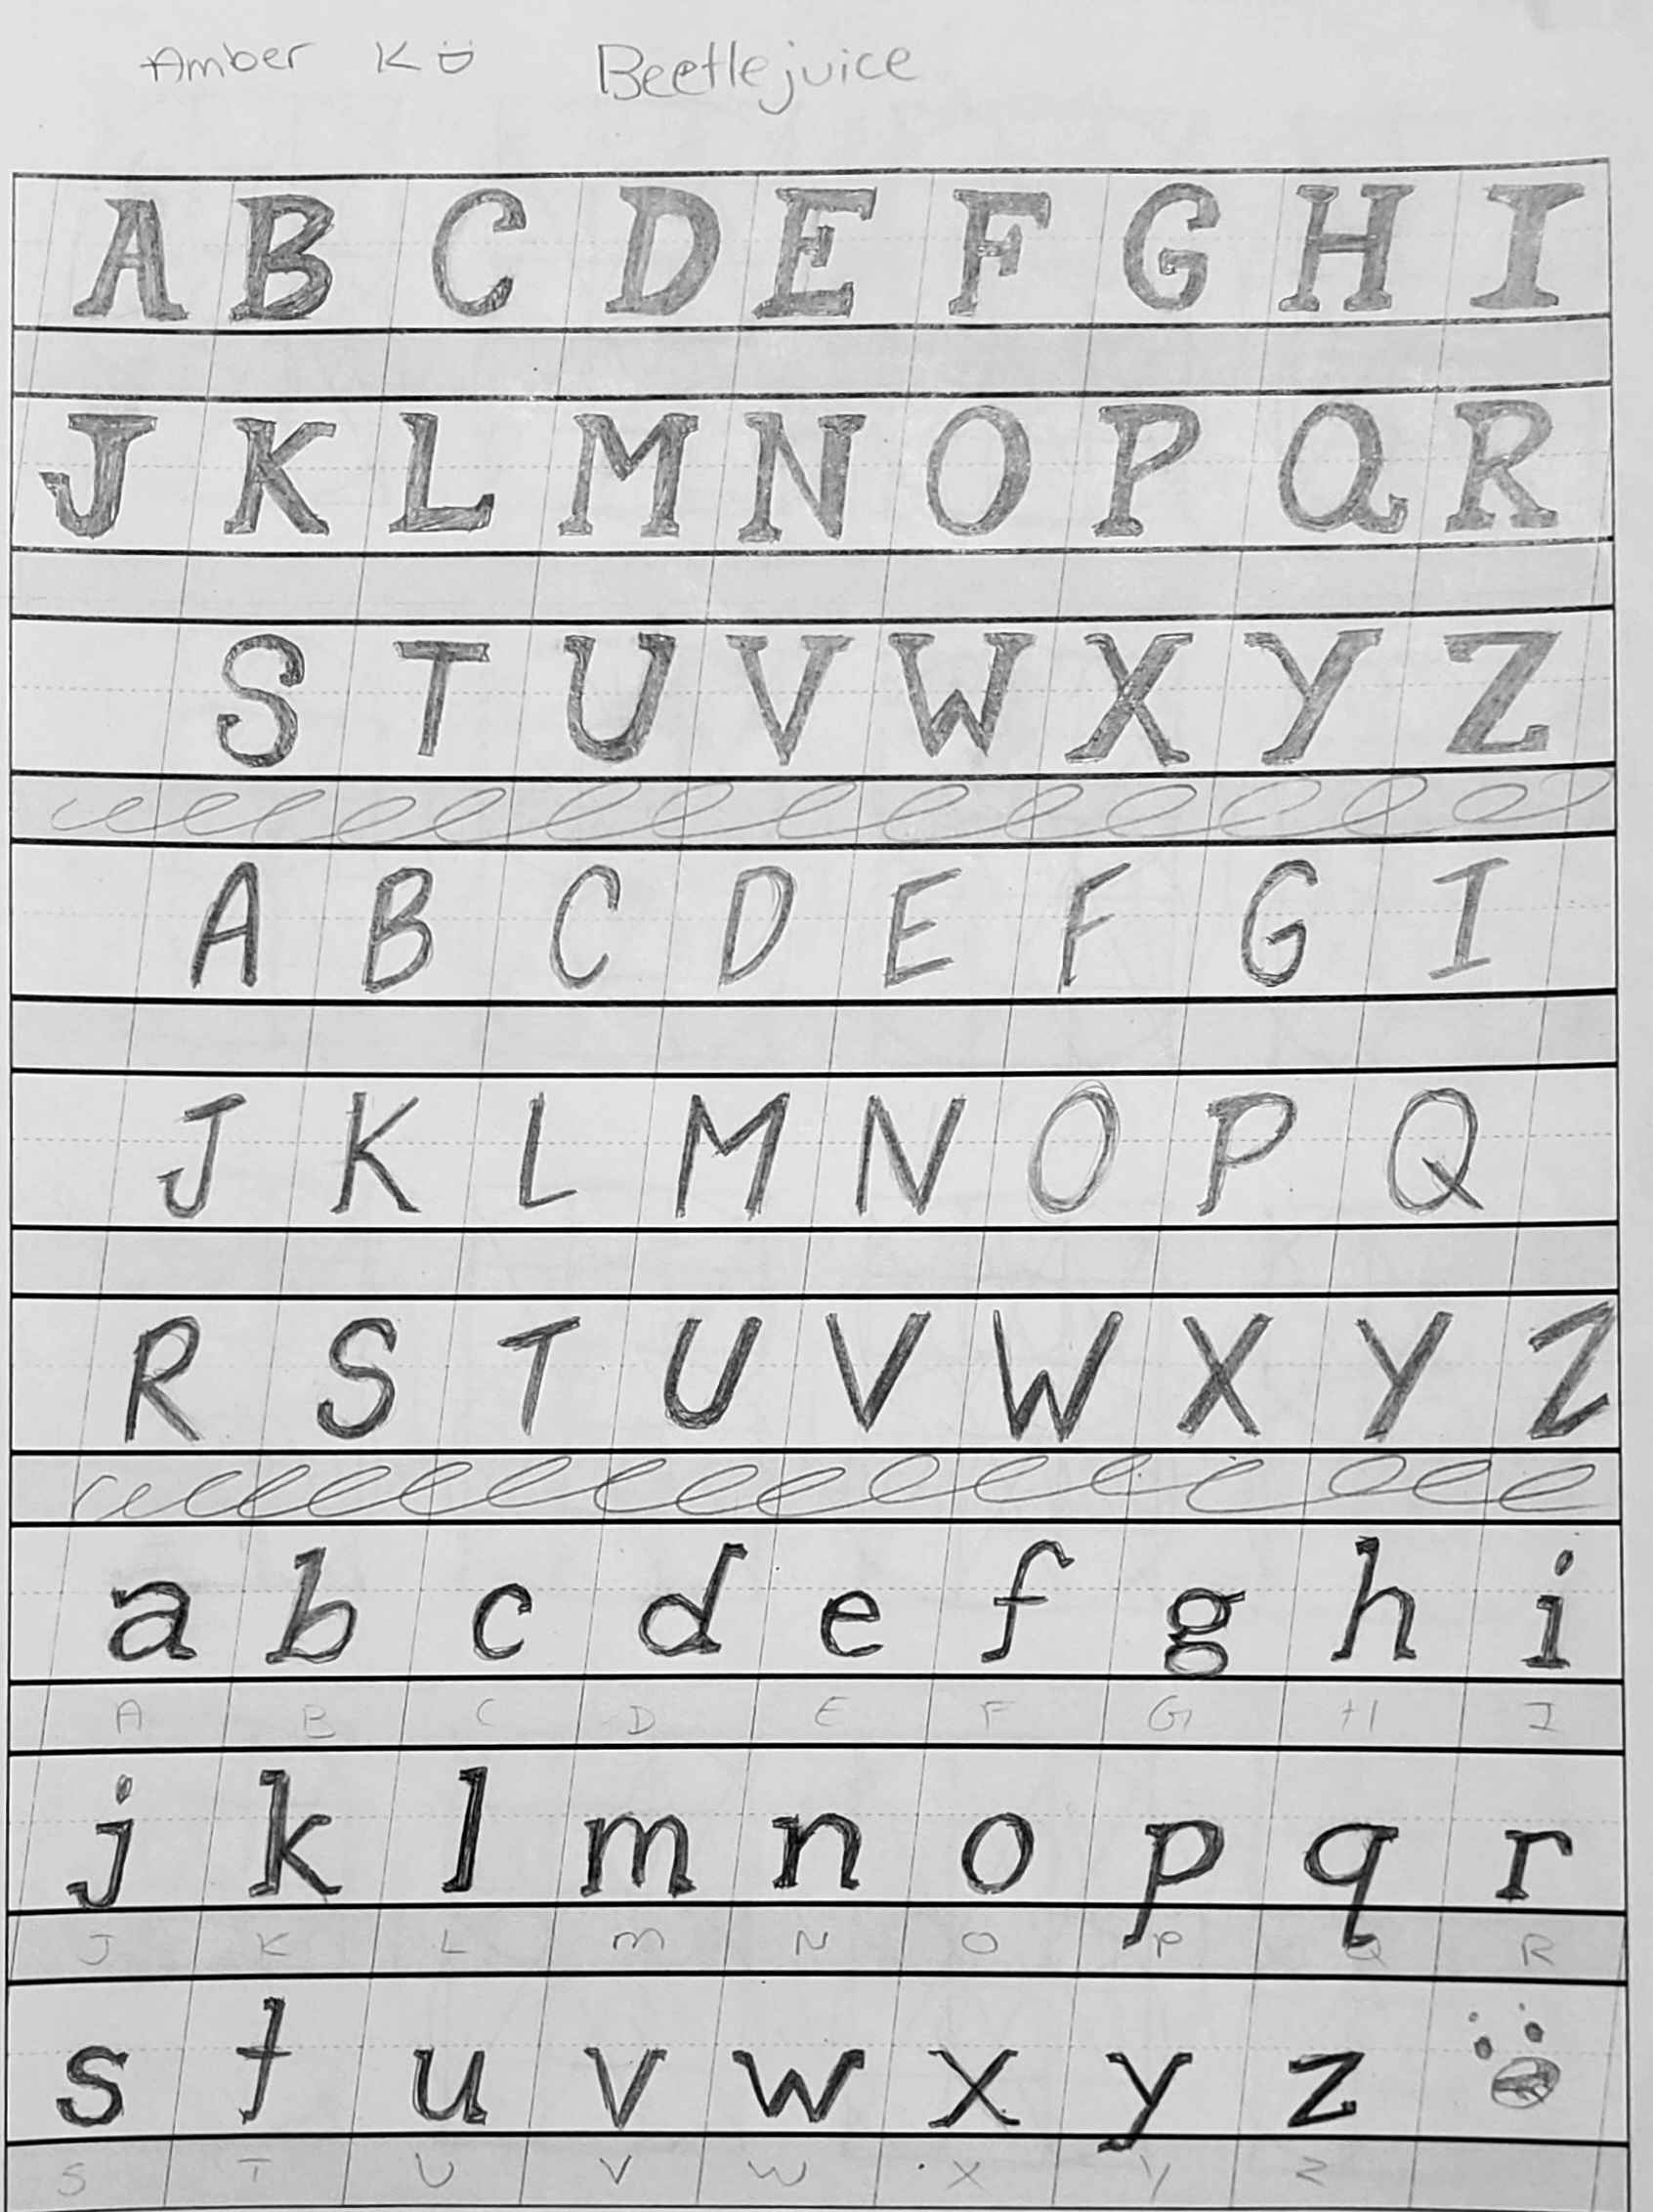 Amber K Beetlejuice
A B C D E F G H I
J K L M N O P Q R
S T U V W X Y Z
A B C D E F G I
J K L M N O P Q
R S T U V W X Y Z
a b c d e f g h i
A B C D E F G H I
j k l m n o p q r
J K L M N O P Q R
s t u v w x y z
S T U V W X Y Z